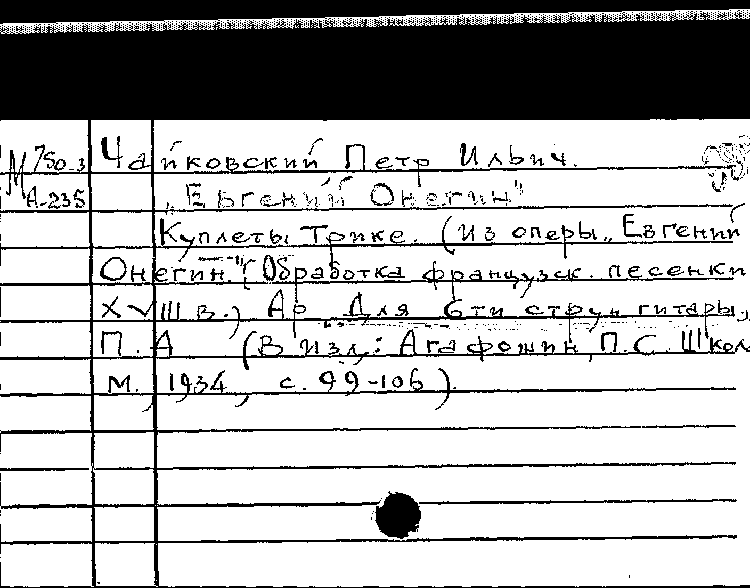 М 750-3 Чайковский Петр Ильич.
А-235 „Евгений Онегин"
Куплеты Трике. (Из оперы „Евгений
Онегин". Обработка французск. песенки
XVIII в.) Ар. Для 6ти струн гитары,
П. А (В изд.: Агафошин, П.С. Школ
М., 1934, с. 99-106).